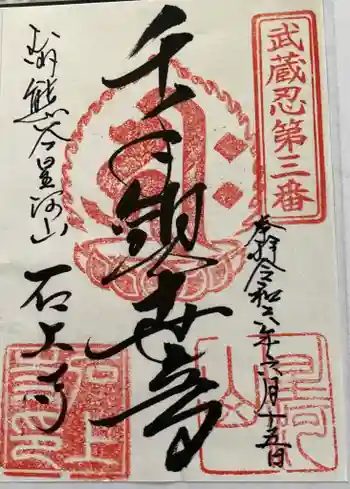 武蔵忍第三番
奉拝 令和六年六月十五日
千手観世音
熊谷 星河山
石上寺